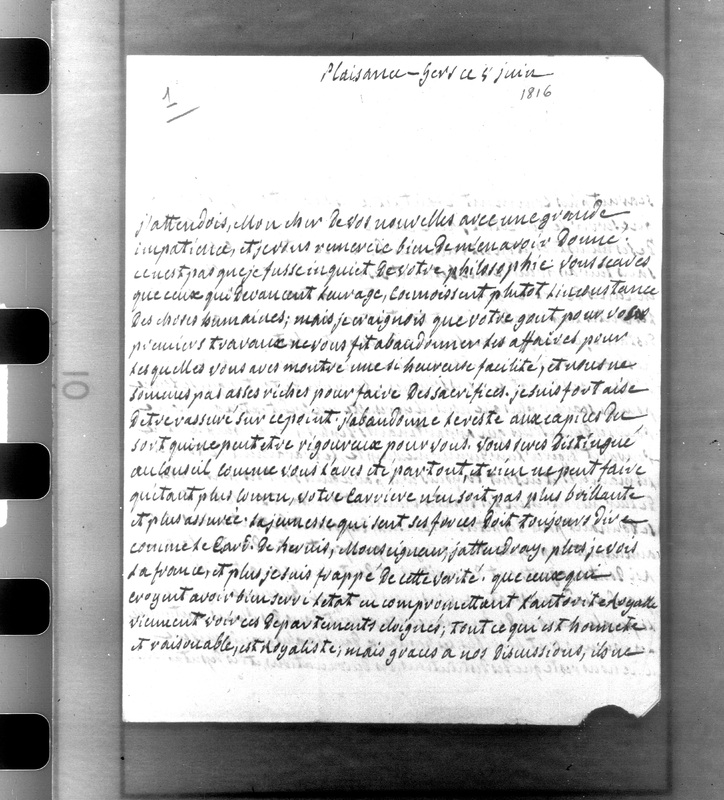 Plaisance - Gers ce 5 juin
1816
1
j'attendois, Mon cher De vos nouvelles avec une grande
impatience, et je vous remercie bien de m'en avoir Donné.
ce n'est pas que je fusse inquiet De votre philosophie. vous scaves
que ceux qui Devancent leur age, Connoissent plutot L'inconstance
Des choses humaines; mais je craignois que votre gout pour vos
premiers travaux ne vous fit abandonner Les affaires pour
Lesquelles vous aves montré une si heureuse facilité, et nous ne
sommes pas asses riches pour faire Des sacrifices. je suis fort aise
D'etre rassuré sur ce point. j'abandonne le reste aux caprices Du
sort qui ne peut etre rigoureux pour vous. vous seres Distingué
au Conseil Comme vous L'aves eté partout, et rien ne peut faire
qu'etant plus Connu, votre Carriere n'en soit pas plus brillante
et plus assurée. La jeunesse qui sent ses forces Doit toujours Dire
comme Le Card. De Bernis, Monseigneur, j'attendray. plus je vois
La france, et plus je suis frappé De cette verité. que ceux qui
croyent avoir bien servi L'etat en compromettant L'autorité Royale
viennent voir ces Departements eloignés; tout ce qui est honnete
et raisonable, est Royaliste; mais graces a nos Discussions, ils ne
10